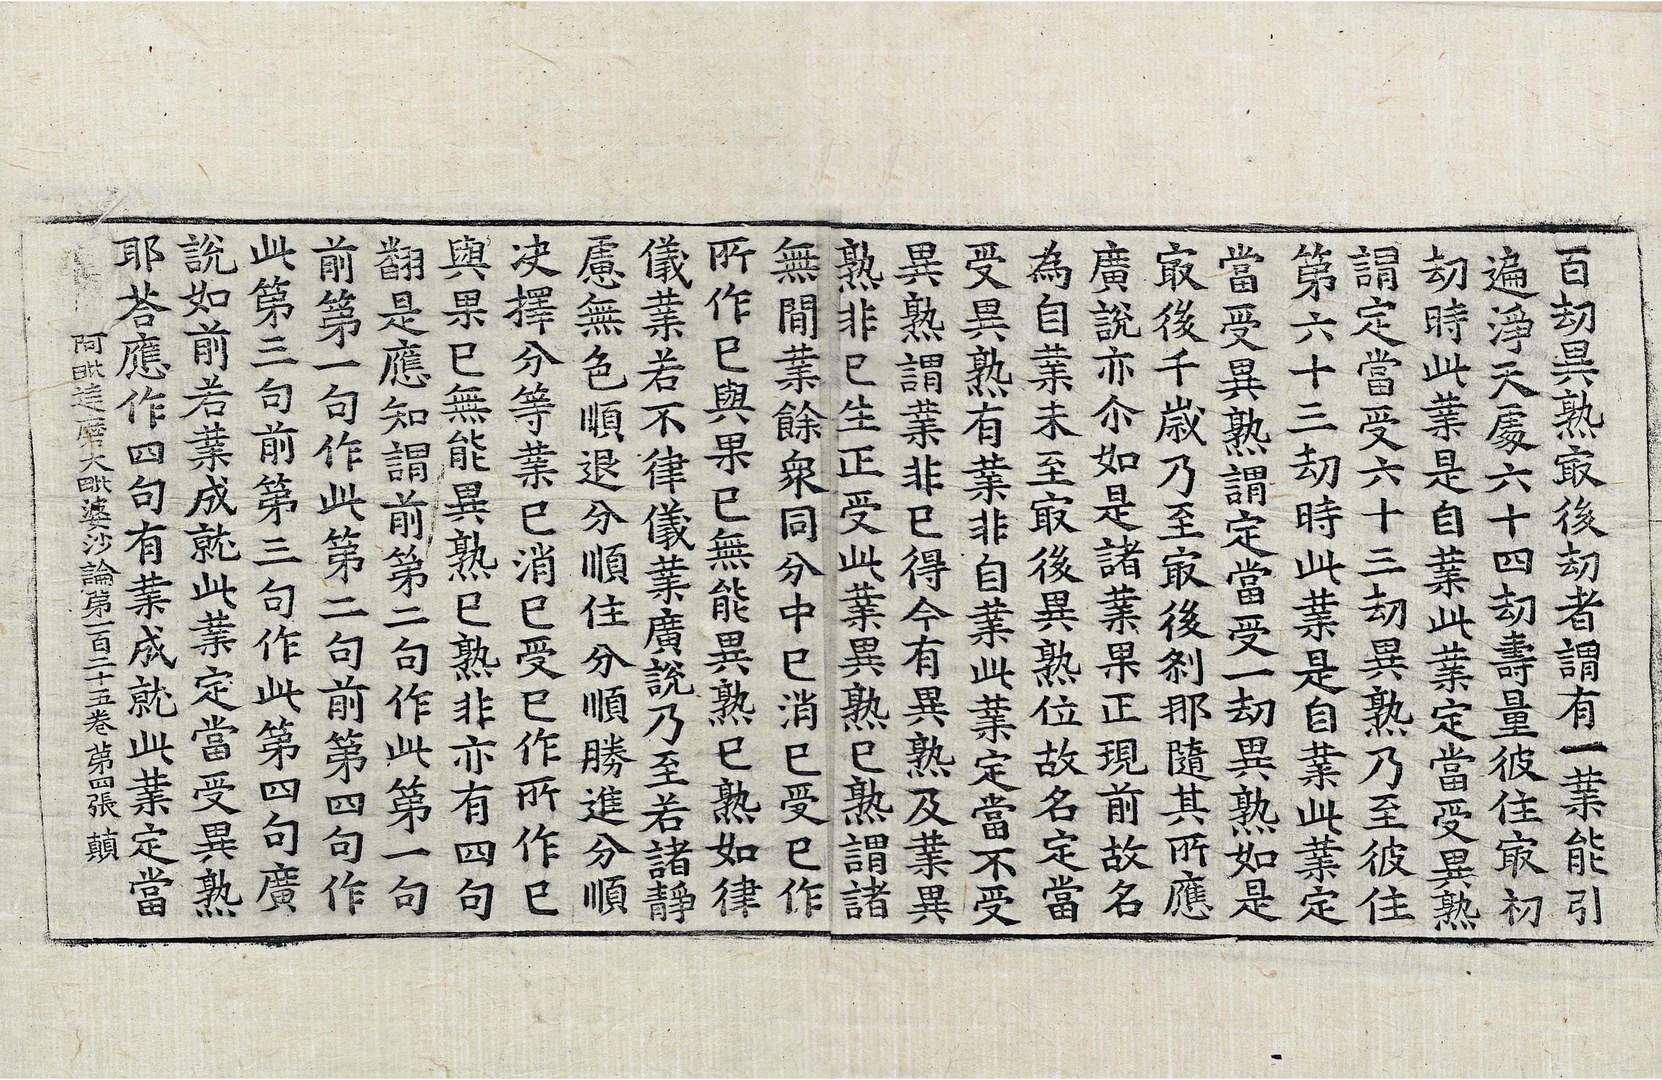 百劫異熟㝡後劫者謂有一業能引
遍淨天處六十四劫壽量彼住㝡初
劫時此業是自業此業定當受異熟
謂定當受六十三劫異熟乃至彼住
第六十三劫時此業是自業此業定
當受異熟謂定當受一劫異熟如是
㝡後千歳乃至㝡後刹那隨其所應
廣說亦尒如是諸業果正現前故名
為自業未至㝡後異熟位故名定當
受異熟有業非自業此業定當不受
異熟謂業非已得今有異熟及業異
熟非已生正受此業異熟已熟謂諸
無間業餘衆同分中已消已受已作
所作已與果已無能異熟已熟如律
儀業若不律儀業廣說乃至若諸靜
慮無色順退分順住分順勝進分順
决擇分等業已消已受已作所作已
與果已無能異熟已熟非亦有四句
翻是應知謂前第二句作此第一句
前第一句作此第二句前第四句作
此第三句前第三句作此第四句廣
說如前若業成就此業定當受異熟
耶荅應作四句有業成就此業定當
阿毗達磨大毗婆沙論第一百二十五卷 第四張 顛